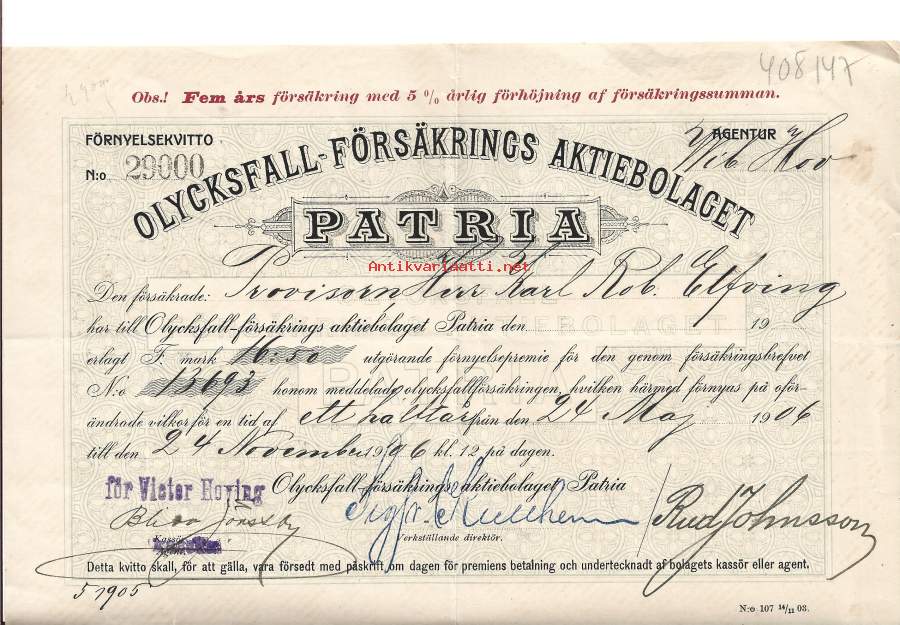 408147
Obs.! Fem års försäkring med 5 % årlig förhöjning af försäkringssumman.
FÖRNYELSEKVITTO
N:o 29000
AGENTUR
Wib. Hov
OLYCKSFALL-FÖRSÄKRINGS AKTIEBOLAGET
PATRIA
Antikvariaatti.net
Den försäkrade: Provisorn Herr Karl Rob. Elfving
har till Olycksfall-försäkrings aktiebolaget Patria den 19
erlagt F. mark 16:50 utgörande förnyelsepremie för den genom försäkringsbrefvet
N:o 13693 honom meddelade olycksfallförsäkringen, hvilken härmed förnyas på oför-
ändrade vilkor för en tid af ett halft år från den 24 Maj 1906
till den 24 November 1906 kl. 12 på dagen.
för Victor Hoving
Olycksfall-försäkrings aktiebolaget Patria
Rud Johnsson
Kassör
Agent.
Verkställande direktör.
Detta kvitto skall, för att gälla, vara försedt med påskrift om dagen för premiens betalning och undertecknadt af bolagets kassör eller agent.
5 1905
N:o 107 14/11 03.